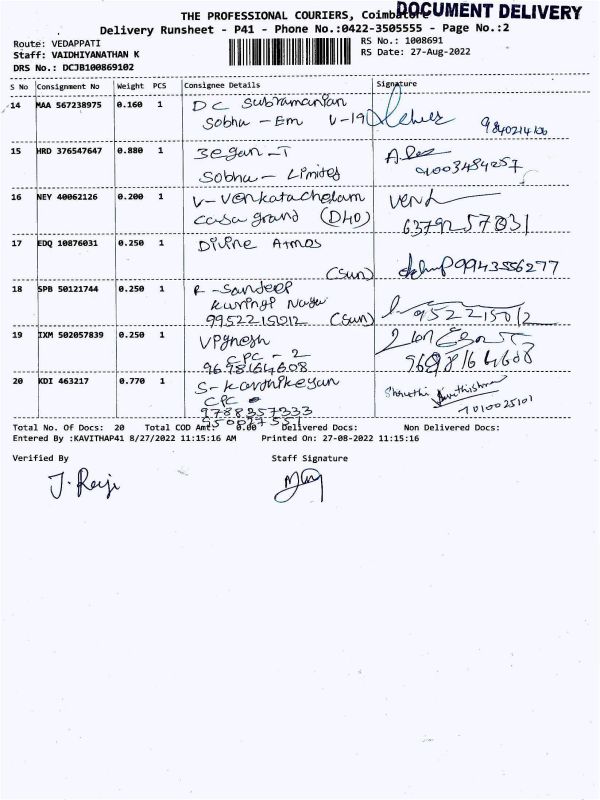 DOCUMENT DELIVERY
THE PROFESSIONAL COURIERS, Coimbatore
Delivery Runsheet - P41 - Phone No.:0422-3505555 - Page No.:2
Route: VEDAPPATI
RS No.: 1008691
Staff: VAIDHIYANATHAN K
RS Date: 27-Aug-2022
DRS No.: DCJB100869102
S No Consignment No Weight PCS Consignee Details Signature
14 MAA 567238975 0.160 1 DC Subramanian
Sobha - Em V-19
15 HRD 376547647 0.880 1
Sobha - Limited
16 NEY 40062126 0.200 1 V-Venkatachalam
casa grand (D40)
17 EDQ 10876031 0.250 1 Divine Atmos
(Sun) 9943556277
18 SPB 50121744 0.250 1 R-Sandeep
9952215012 (Sun)
19 IXM 502057839 0.250 1 Vignesh
CPC - 2
9698164608
20 KDI 463217 0.770 1 S-Karthikeyan
CPC
9788357333
7010025101
Total No. Of Docs: 20 Total COD Amt: 0.00 Delivered Docs: Non Delivered Docs:
Entered By :KAVITHAP41 8/27/2022 11:15:16 AM Printed On: 27-08-2022 11:15:16
Verified By Staff Signature